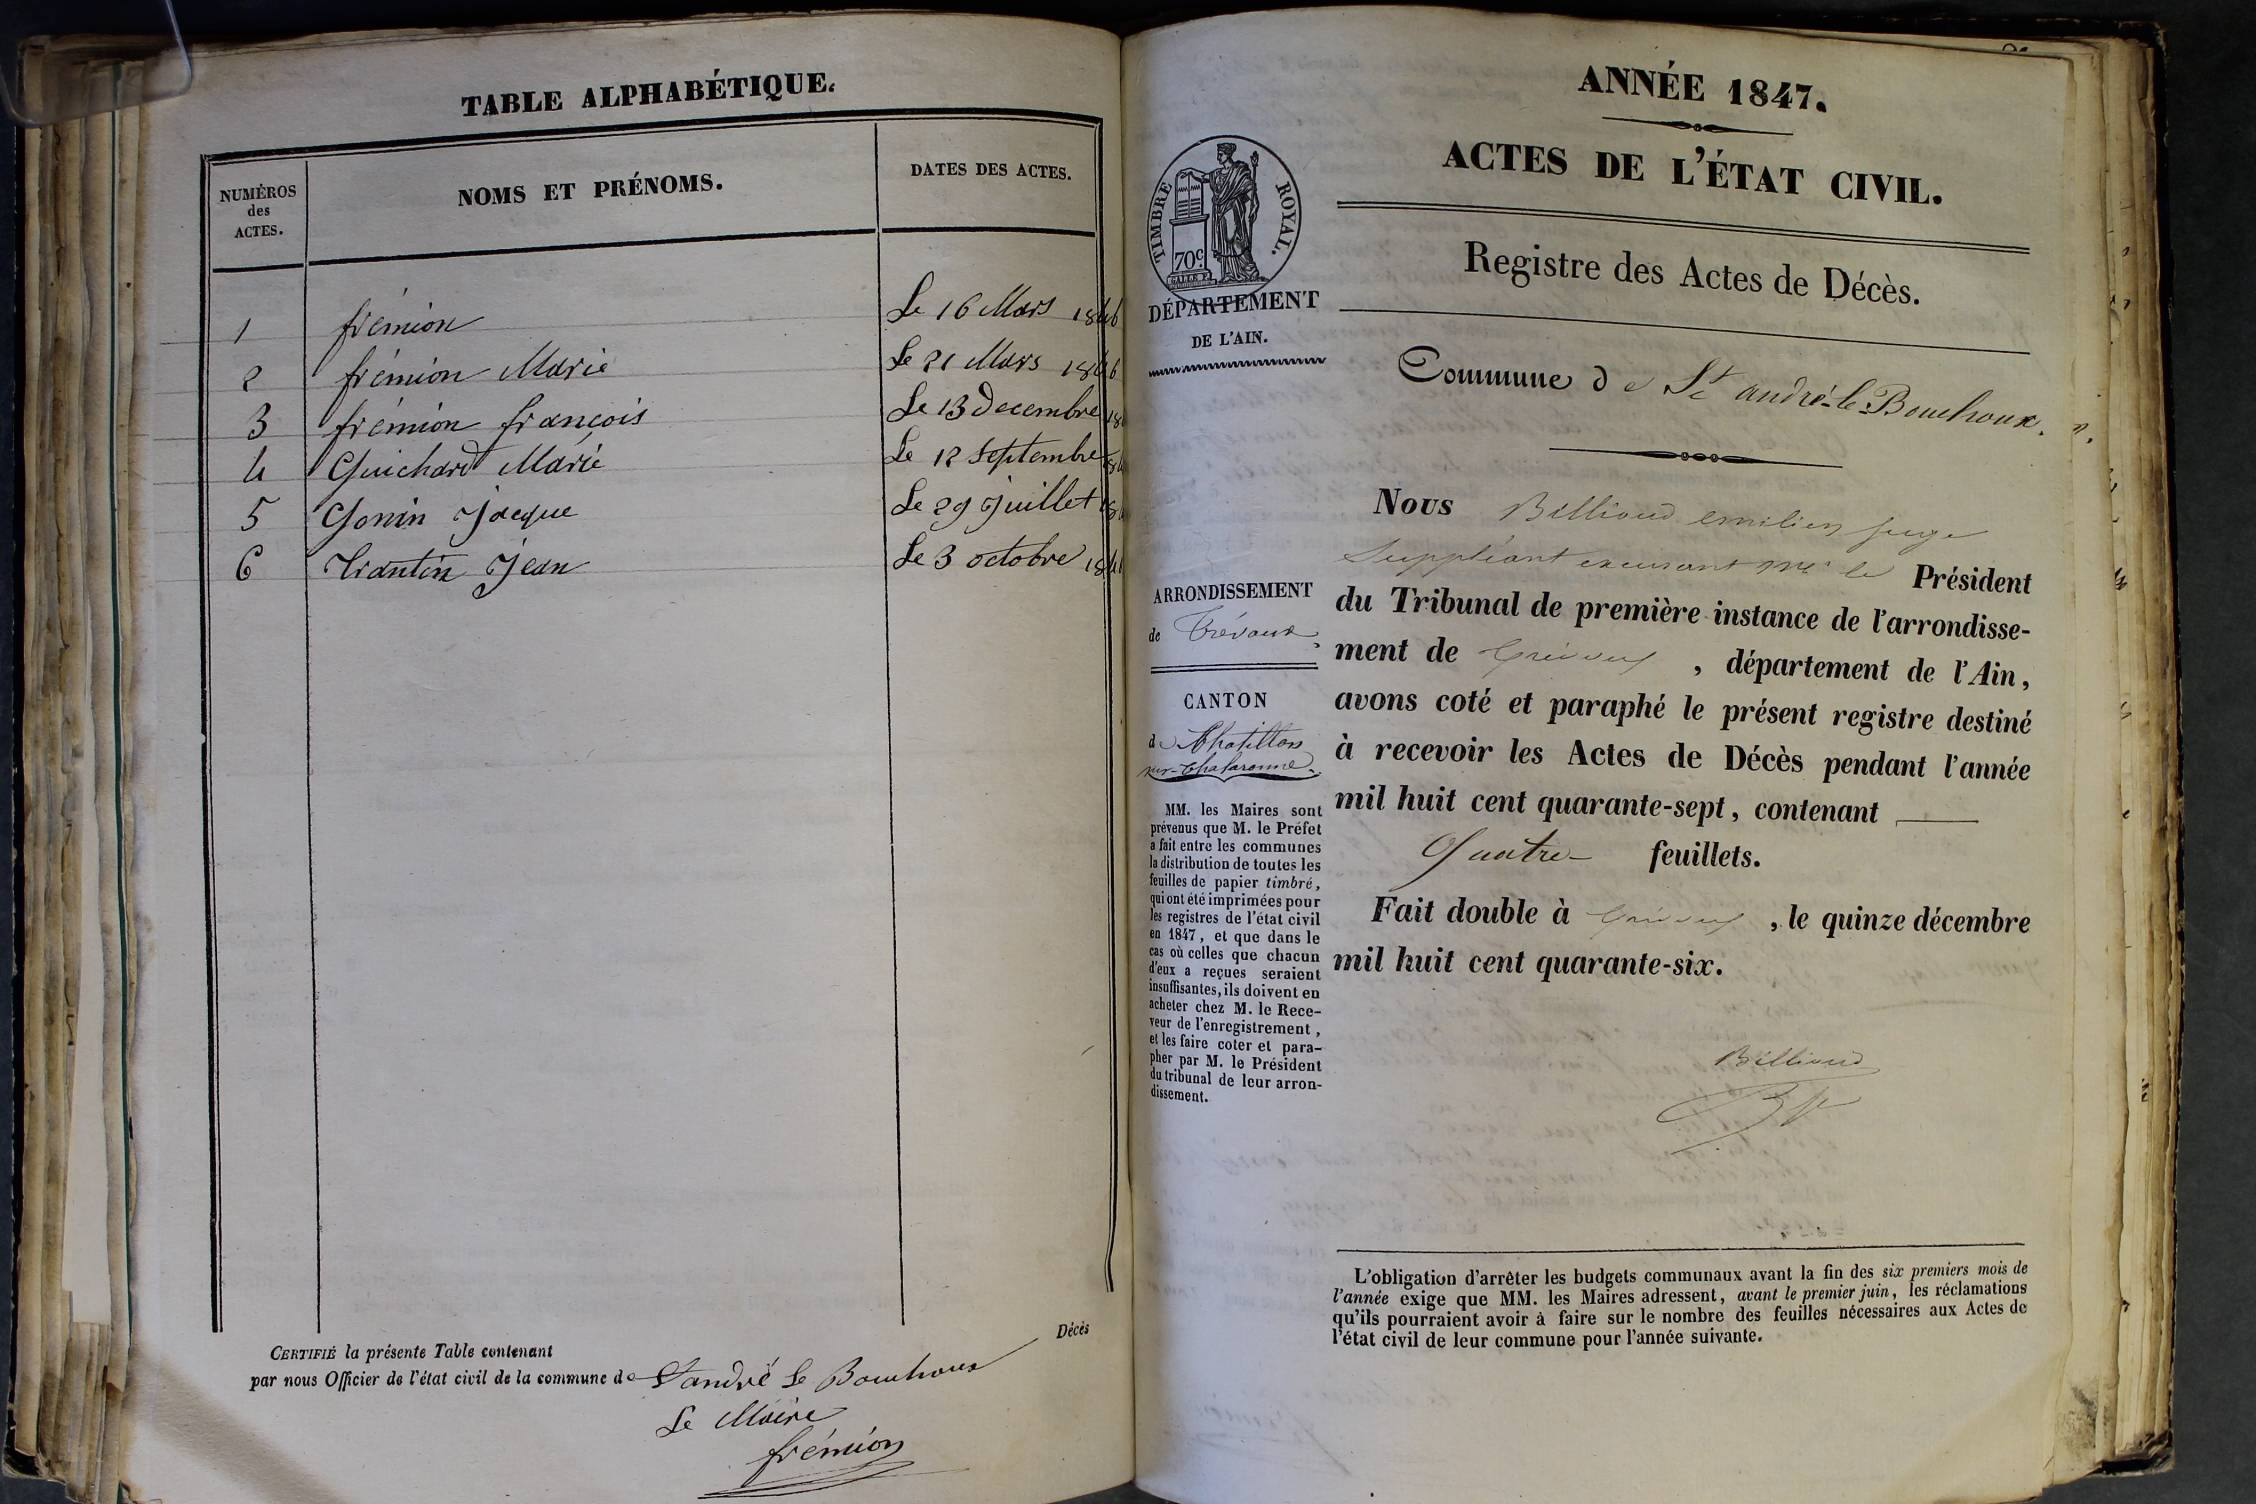 TABLE ALPHABÉTIQUE.
NUMÉROS
des
ACTES.
NOMS ET PRÉNOMS.
DATES DES ACTES.
1 frémion Le 16 Mars 1846
2 frémion Marie Le 21 Mars 1846
3 frémion françois Le 13 decembre 18
4 Guichard Marie Le 12 Septembre 184
5 Gonin Jacque Le 29 Juillet 18
6 Trantin Jean Le 3 octobre 184
Décès
CERTIFIÉ la présente Table contenant
par nous Officier de l'état civil de la commune de St andré Le Bouchoux
Le Maire
frémion
ANNÉE 1847.
ACTES DE L'ÉTAT CIVIL.
Registre des Actes de Décès.
TIMBRE ROYAL.
70c
DÉPARTEMENT
DE L'AIN.
Commune de St andré-le-Bouchoux.
ARRONDISSEMENT
de Trévoux
CANTON
de Chatillon
sur-Chalaronne
MM. les Maires sont
prévenus que M. le Préfet
a fait entre les communes
la distribution de toutes les
feuilles de papier timbré,
qui ont été imprimées pour
les registres de l'état civil
en 1847, et que dans le
cas où celles que chacun
d'eux a reçues seraient
insuffisantes, ils doivent en
acheter chez M. le Rece-
veur de l'enregistrement,
et les faire coter et para-
pher par M. le Président
du tribunal de leur arron-
dissement.
Nous Billioud emilien juge
Suppléant excusant Mr le Président
du Tribunal de première instance de l'arrondisse-
ment de Trévoux, département de l'Ain,
avons coté et paraphé le présent registre destiné
à recevoir les Actes de Décès pendant l'année
mil huit cent quarante-sept, contenant
Quatre feuillets.
Fait double à Trévoux, le quinze décembre
mil huit cent quarante-six.
Billioud
L'obligation d'arrêter les budgets communaux avant la fin des six premiers mois de
l'année exige que MM. les Maires adressent, avant le premier juin, les réclamations
qu'ils pourraient avoir à faire sur le nombre des feuilles nécessaires aux Actes de
l'état civil de leur commune pour l'année suivante.